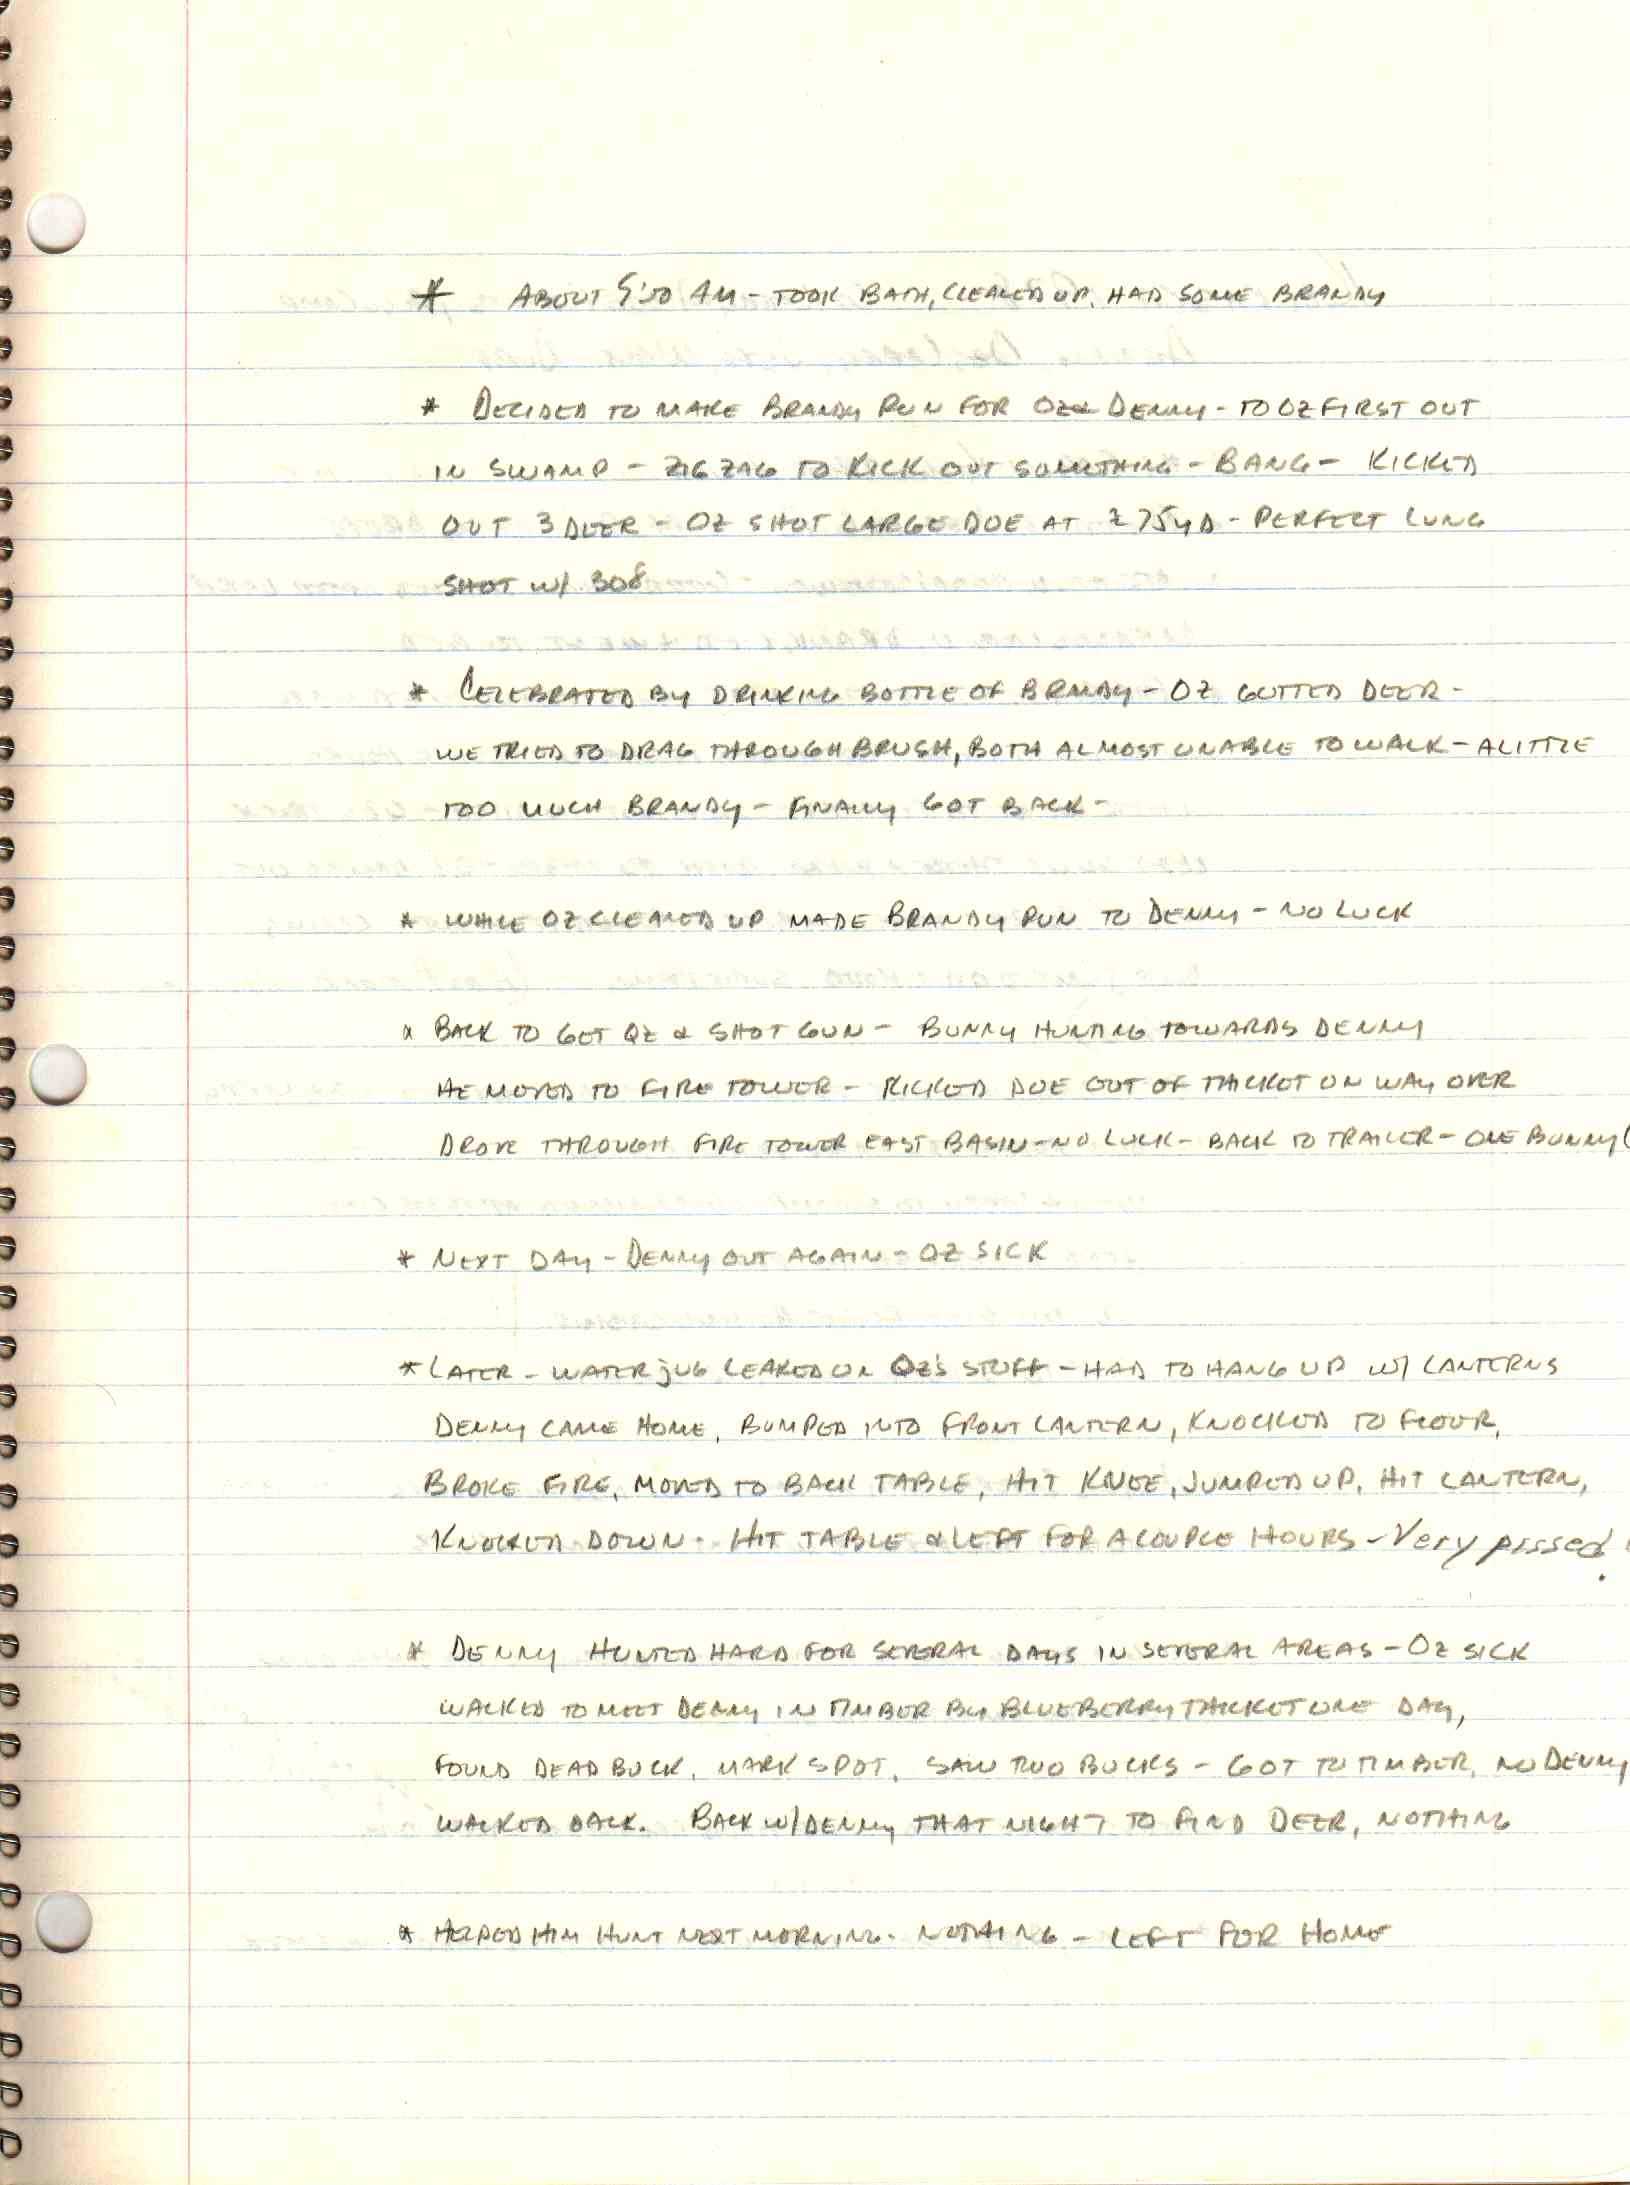 * ABOUT 9:30 AM - TOOK BATH, CLEANED UP, HAD SOME BRANDY
* DECIDED TO MAKE BRANDY RUN FOR OZ & DENNY - TO OZ FIRST OUT
IN SWAMP - ZIG ZAG TO KICK OUT SOMETHING - BANG - KICKED
OUT 3 DEER - OZ SHOT LARGE DOE AT 75 YD - PERFECT LUNG
SHOT W/ 308
* CELEBRATED BY DRINKING BOTTLE OF BRANDY - OZ GUTTED DEER -
WE TRIED TO DRAG THROUGH BRUSH, BOTH ALMOST UNABLE TO WALK - A LITTLE
TOO MUCH BRANDY - FINALLY GOT BACK -
* WHILE OZ CLEANED UP MADE BRANDY RUN TO DENNY - NO LUCK
* BACK TO GET OZ & SHOT GUN - BUNNY HUNTING TOWARDS DENNY
HE MOVED TO FIRE TOWER - KICKED DOE OUT OF THICKET ON WAY OVER
DROVE THROUGH FIRE TOWER EAST BASIN - NO LUCK - BACK TO TRAILER - ONE BUNNY (
* NEXT DAY - DENNY OUT AGAIN - OZ SICK
* LATER - WATER JUG LEAKED ON OZ'S STUFF - HAD TO HANG UP W/ LANTERNS
DENNY CAME HOME, BUMPED INTO FRONT LANTERN, KNOCKED TO FLOOR,
BROKE FIRE, MOVED TO BACK TABLE, HIT KNEE, JUMPED UP, HIT LANTERN,
KNOCKED DOWN - HIT TABLE & LEFT FOR A COUPLE HOURS - Very pissed!
* DENNY HUNTED HARD FOR SEVERAL DAYS IN SEVERAL AREAS - OZ SICK
WALKED TO MEET DENNY IN TIMBER BY BLUEBERRY THICKET ONE DAY,
FOUND DEAD BUCK, MARK SPOT, SAW TWO BUCKS - GOT TO TIMBER, NO DENNY
WALKED BACK. BACK W/ DENNY THAT NIGHT TO FIND DEER, NOTHING
* HELPED HIM HUNT NEXT MORNING. NOTHING - LEFT FOR HOME